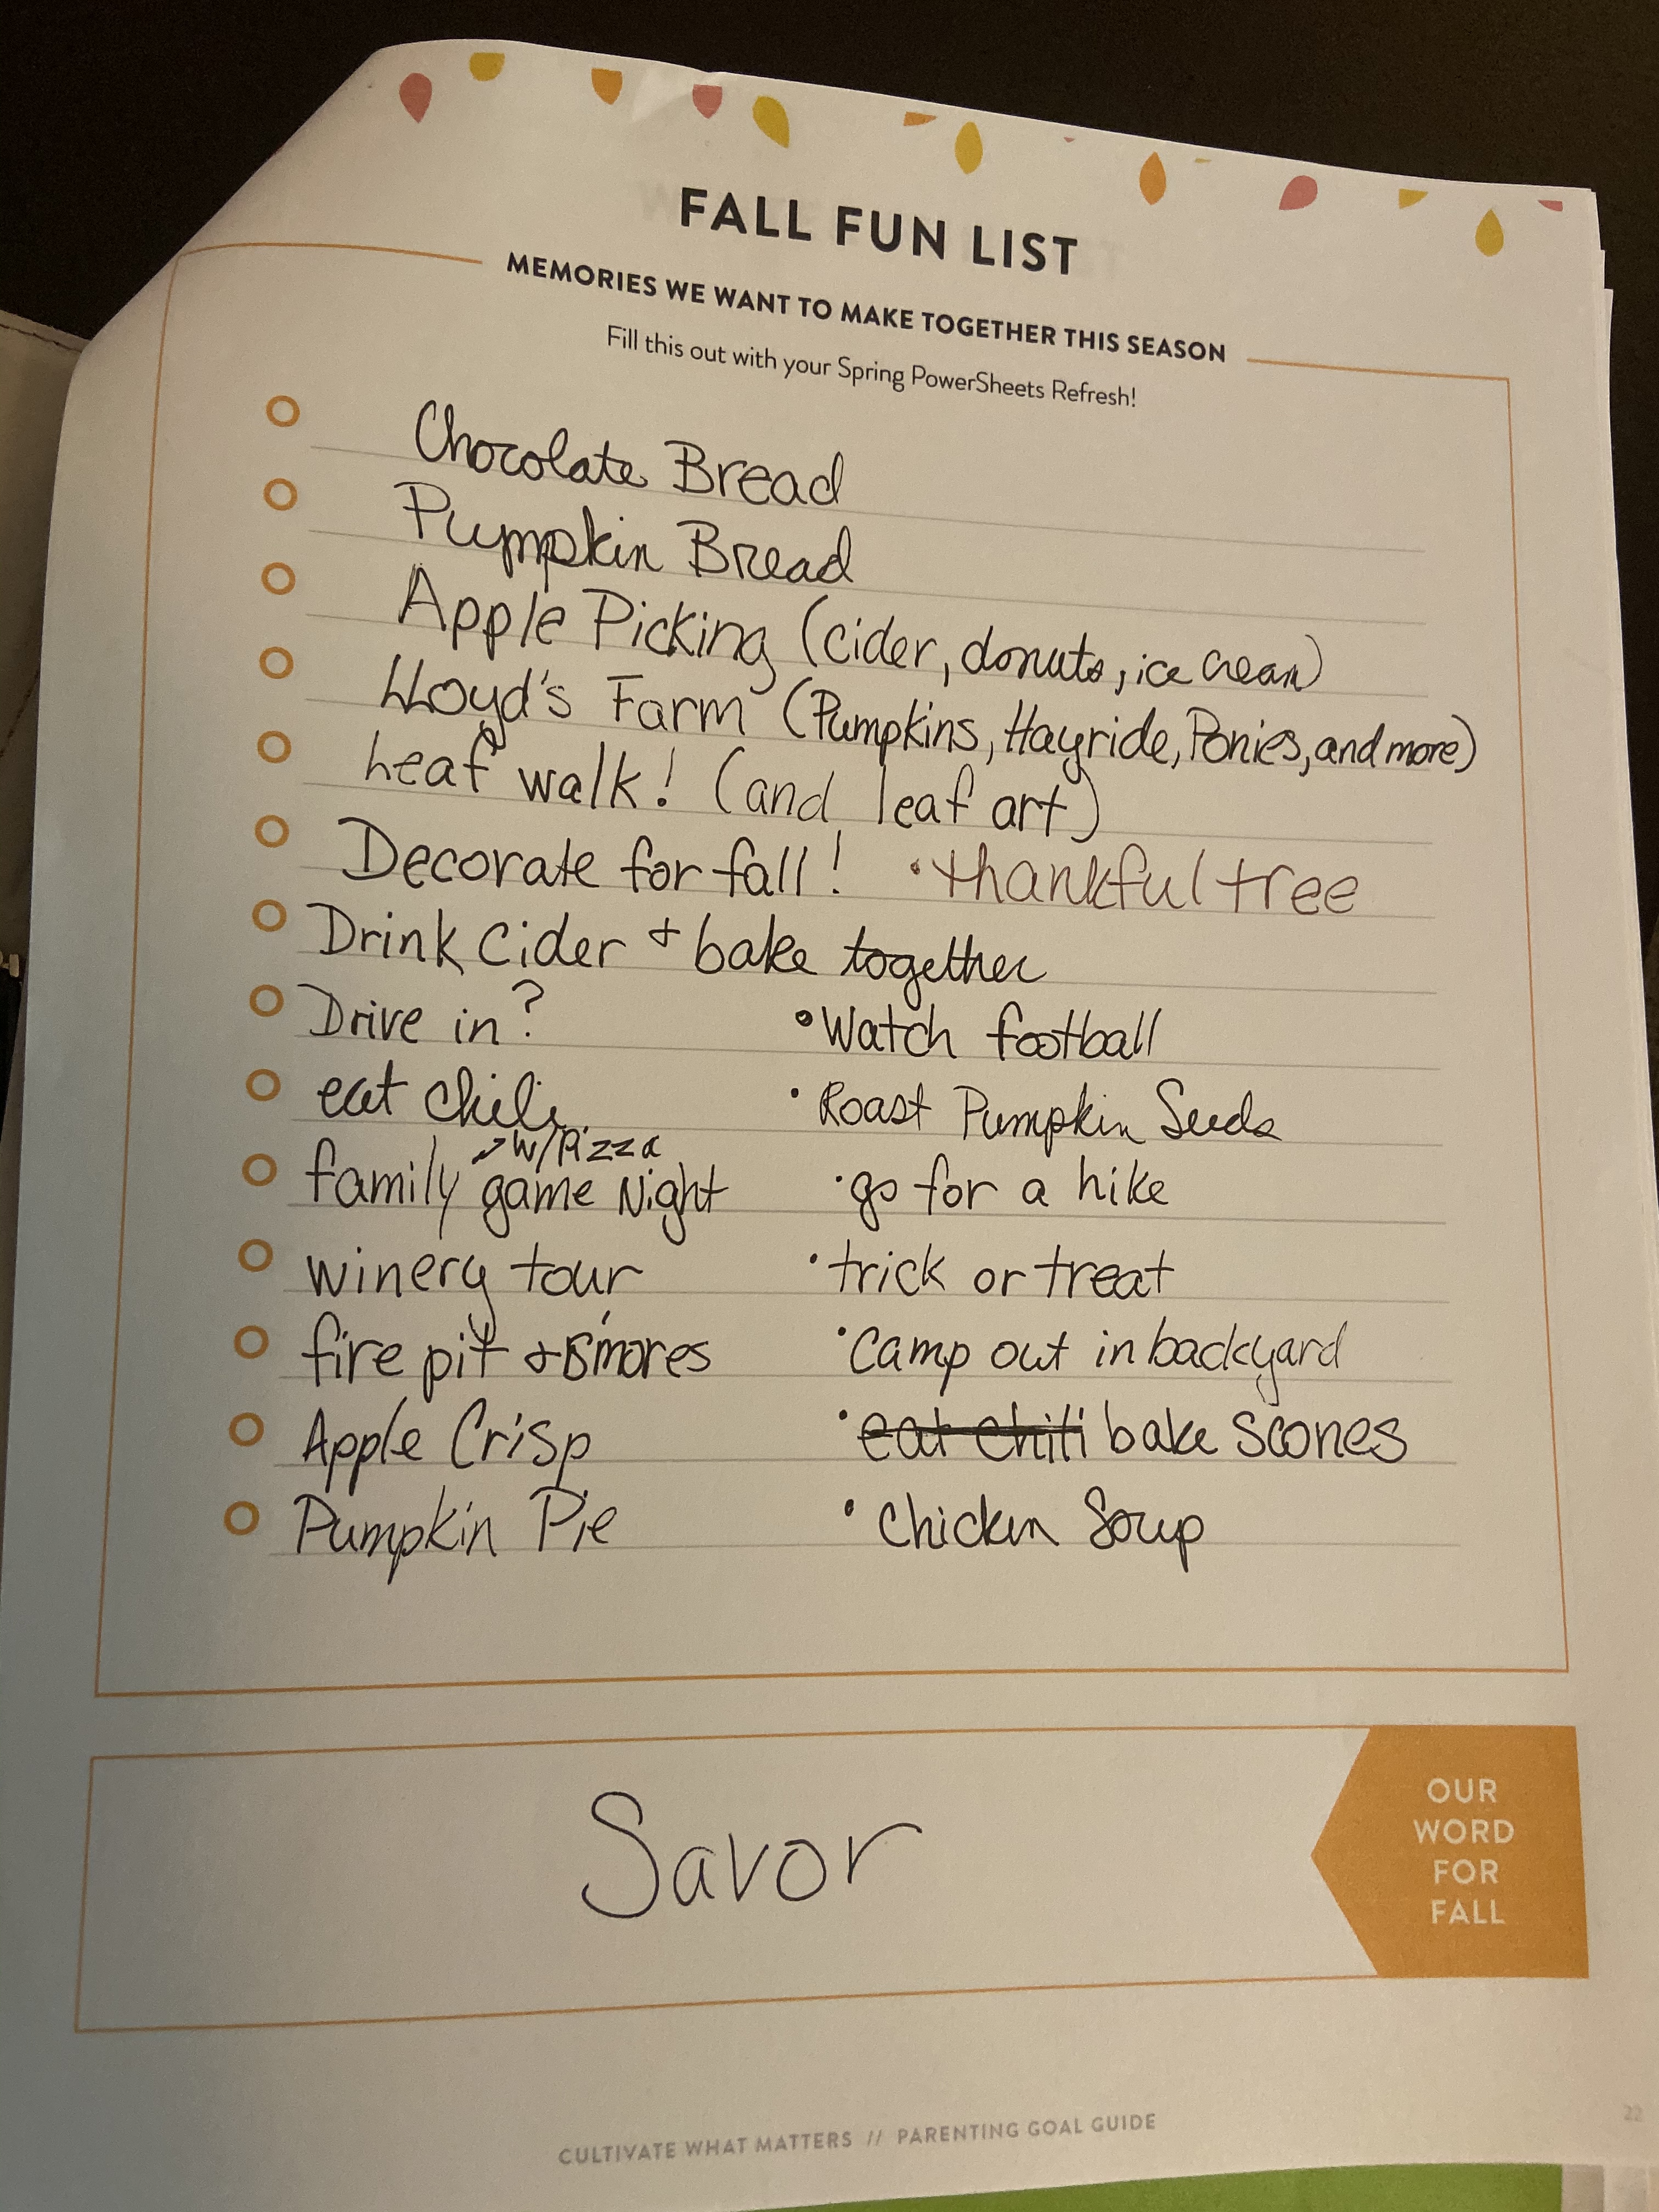 FALL FUN LIST
MEMORIES WE WANT TO MAKE TOGETHER THIS SEASON
Fill this out with your Spring PowerSheets Refresh!
Chocolate Bread
Pumpkin Bread
Apple Picking (cider, donuts, ice cream)
Lloyd's Farm (Pumpkins, Hayride, Ponies, and more)
Leaf walk! (and leaf art)
Decorate for fall! • thankful tree
Drink Cider + bake together
Drive in? • Watch football
eat chili • Roast Pumpkin Seeds
w/Pizza
family game Night • go for a hike
winery tour • trick or treat
fire pit + S'mores • Camp out in backyard
Apple Crisp • eat chili bake scones
Pumpkin Pie • Chicken Soup
Savor
OUR
WORD
FOR
FALL
CULTIVATE WHAT MATTERS // PARENTING GOAL GUIDE
22